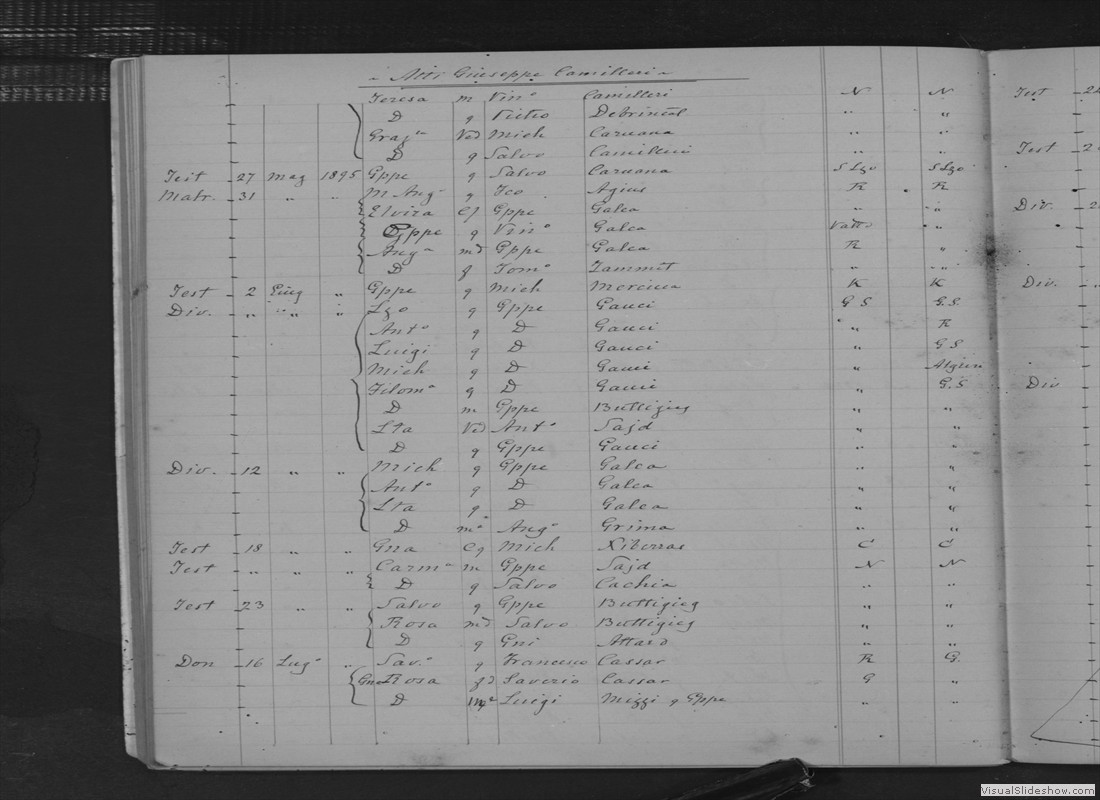 Atti Giuseppe Camilleri
Teresa m Vin° Camilleri N N
D q Pietro Debrincat " "
Graz° Ved Mich Caruana " "
D q Salvo Camilleri " "
Test 27 Mag 1895 Gppe q Salvo Caruana S Lzo S Lzo
Matr. 31 " " M Ang° q Fco Agius R R
Elvira Gppe Galea " "
Gppe q Vin° Galea "
Ang° md Gppe Galea R "
D q Tom° Zammit " "
Test 2 Giug " Gppe q Mich Mercieca K K
Div. " " " Lzo q Gppe Gauci G S G.S
Ant° q D Gauci " R
Luigi q D Gauci " G S
Mich q D Gauci " Algieri
Filom° q D Gauci " G.S
D m Gppe Buttigieg " "
Lta Ved Ant° Sajd " "
D q Gppe Gauci " "
Div. 12 " " Mich q Gppe Galea " "
Ant° q D Galea " "
Lta q D Galea " "
D m° Ang° Grima " "
Test 18 " " Gna Mich Xiberras C C
Test " " " Carm° m Gppe Sajd N N
D q Salvo Cachia " "
Test 23 " " Salvo q Gppe Buttigieg " "
Rosa md Salvo Buttigieg " "
D q Gni Attard " "
Don 16 Lug° " Sav.° q Francesco Cassar R G.
Rosa Saverio Cassar G "
D Luigi Mizzi q Gppe " "
Test
Test
Div.
Div.
Div
VisualSlideshow.com